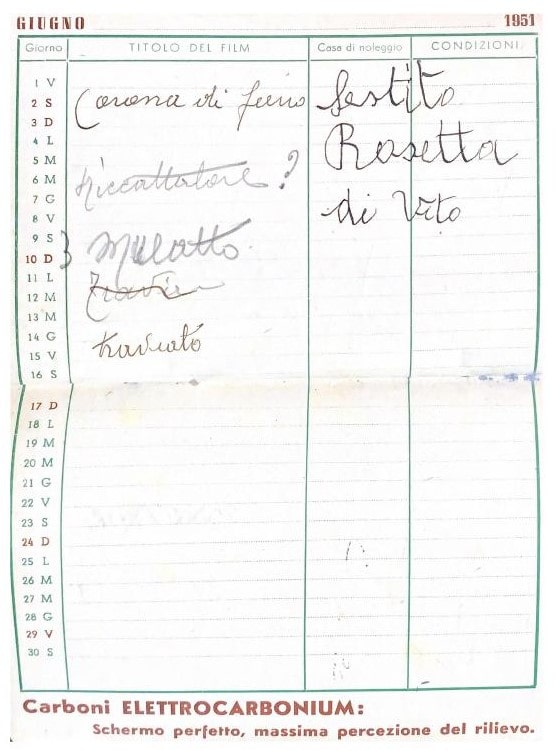 GIUGNO 1951
Giorno TITOLO DEL FILM Casa di noleggio CONDIZIONI
1 V
2 S Corona di ferro
3 D
4 L Rosetta
5 M
6 M Riccattatore ?
7 G di Vito
8 V
9 S Mulatto
10 D
11 L
12 M
13 M
14 G traviato
15 V
16 S
17 D
18 L
19 M
20 M
21 G
22 V
23 S
24 D
25 L
26 M
27 M
28 G
29 V
30 S
Carboni ELETTROCARBONIUM:
Schermo perfetto, massima percezione del rilievo.